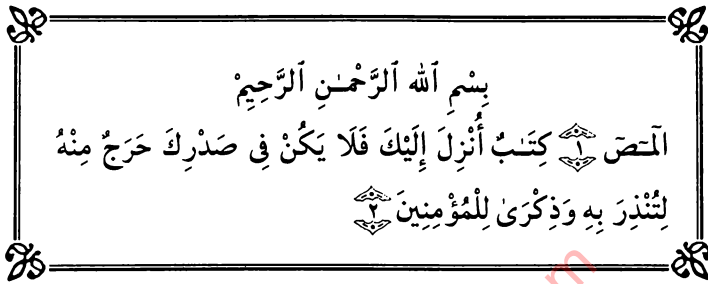 بِسْمِ ٱللَّه ٱلرَّحْمَـٰنِ ٱلرَّحِيمِْ
الٓمٓصٓ ١ كِتَـٰبٌ أُنْزِلَ إِلَيْكَ فَلَا يَكُنْ فِى صَدْرِكَ حَرَجٌ مِنْهُ
لِتُنْذِرَ بِهِ وَذِكْرَىٰ لِلْمُؤْمِنِينَ ٢
m